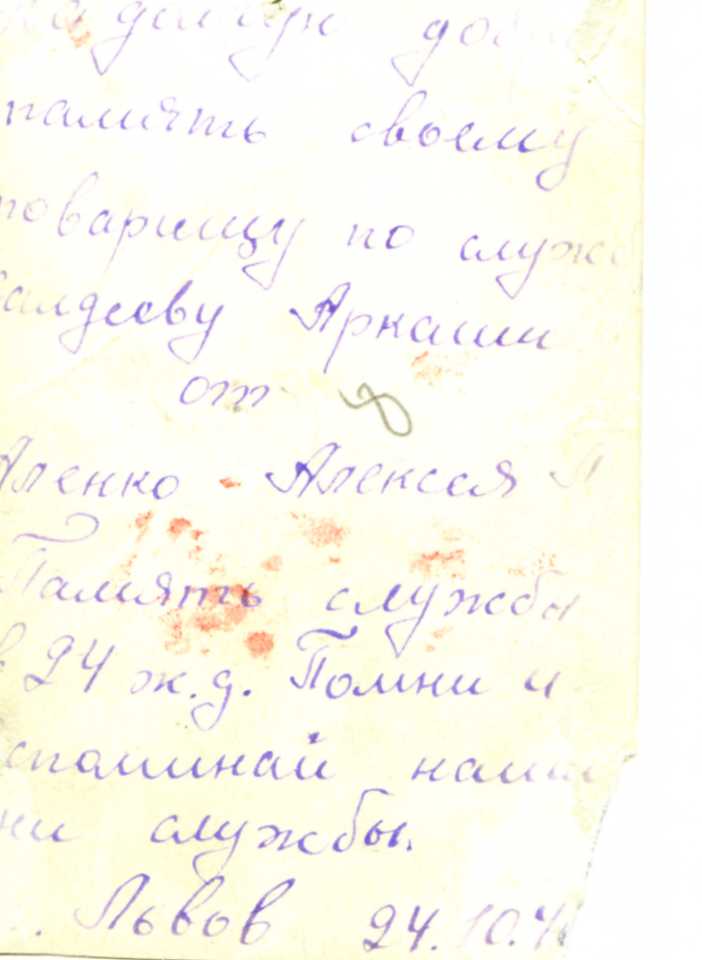 на долгую
память своему
товарищу по служ
алдееву Аркаши
от
Аленко - Алексея П
Память службы
в 24 ж.д. Помни и
споминай наши
ни службы.
. Львов 24.10.4